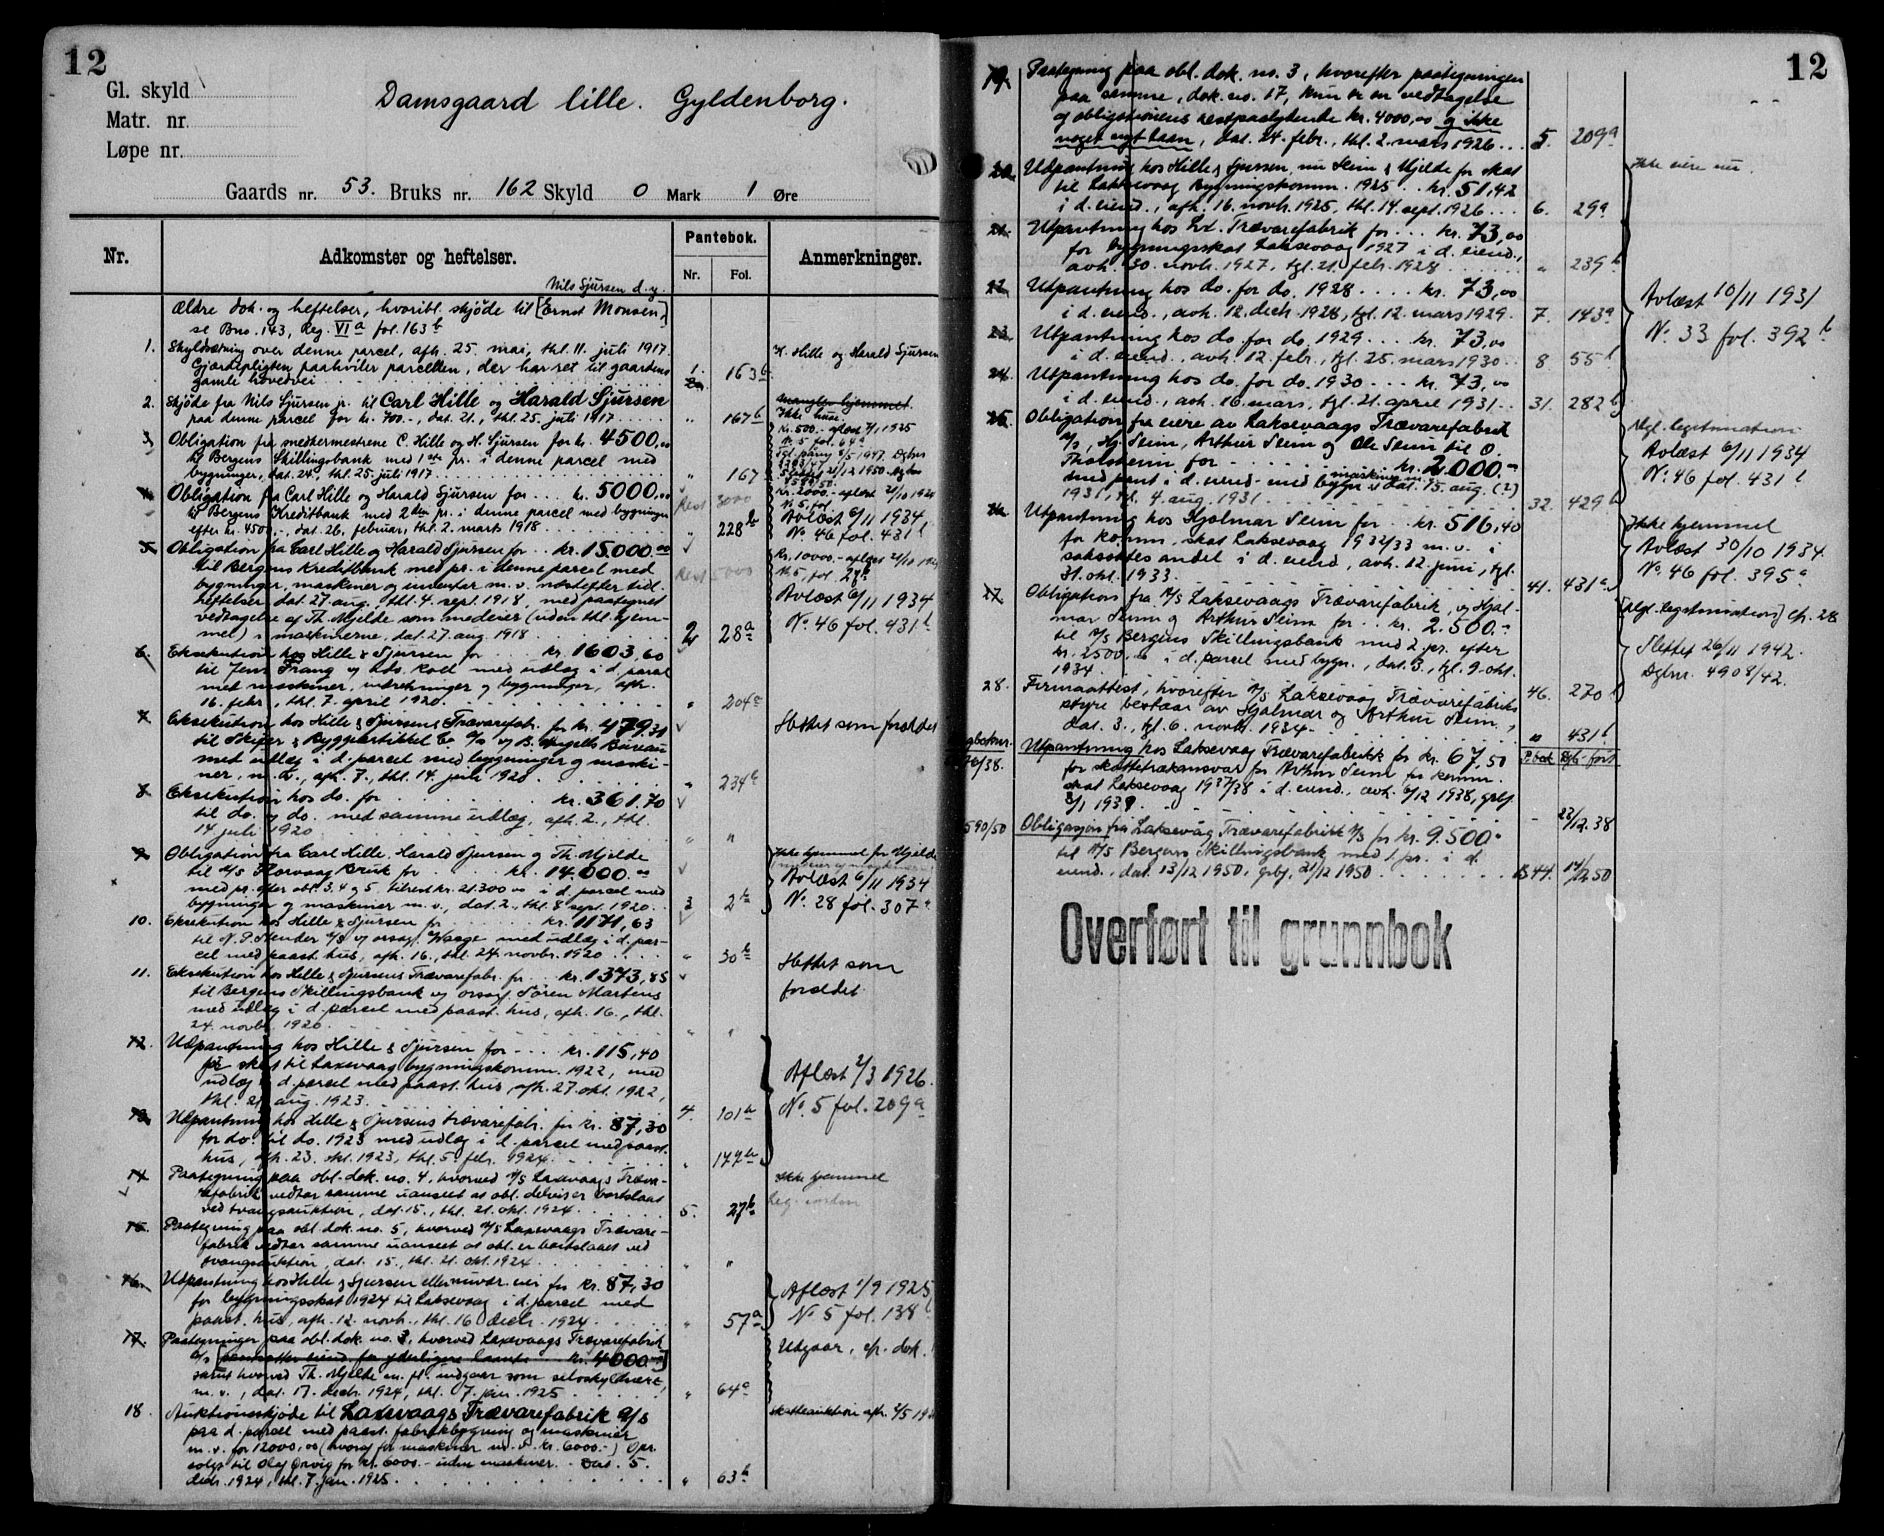 12
Gl. skyld
Matr. nr.
Løpe nr.
Damsgaard lille. Gyldenborg.
Gaards nr. 53. Bruks nr. 162 Skyld 0 Mark 1 Øre
Nr.
Adkomster og heftelser.
Pantebok.
Nr. Fol.
Anmerkninger.
Nils Sjursen d.y.
Ældre dok. og heftelser, hvoribl. skjøde til [Ernst Monsen,]
se Bno. 143, Reg. VIa fol. 163b
1. Skyldsætning over denne parcel, afh. 25. mai, thl. 11. juli 1917.
Gjærdepligten paahviler parcellen, der har ret til gaardens
gamle hovedvei 1. 163b
K. Hille og Harald Sjursen
2. Skjøde fra Nils Sjursen jr. til Carl Hille og Harald Sjursen
paa denne parcel for kr. 700.-, dat. 21., thl. 25. juli 1917 " 167b
mangler hjemmel.
Ikke hus
3. Obligation fra snedkermestrene C. Hille og H. Sjursen for kr. 4500,00
til Bergens Skillingsbank med 1ste pr. i denne parcel med
bygninger, dat. 24., thl. 25. juli 1917 " 167
Kr. 500.- aflæst 7/1 1925
N. 5 fol. 64a
4. Obligation fra Carl Hille og Harald Sjursen for kr. 5000,00
til Bergens Kreditbank med 2den pr. i denne parcel med bygninger
efter kr. 4500, dat. 26. februar, thl. 2. marts 1918 " 228b
Rest 3000
Kr. 2000.- aflæst 21/10 1924
N. 5 fol.
Avlæst 6/11 1934
No. 46 fol. 431b
5. Obligation fra Carl Hille og Harald Sjursen for kr. 15.000.00
til Bergens Kreditbank med pr. i denne parcel med
bygninger, maskiner og inventar m.v. næstefter tidl.
heftelser, dat. 27. aug., thl. 4. sept. 1918, med paategnet
vedtagelse af Th. Mjelde som medeier (uden thl. hjem-
mel) i maskinerne, dat. 27. aug. 1918 2 28a
Rest 5000
Kr. 10000.- aflæst 21/10 1924
N. 5, fol. 27b
Avlæst 6/11 1934
No. 46 fol. 431b
6. Eksekution hos Hille & Sjursen for kr. 1603,60
til Jens Frang og Ads. Roll med udlæg i d. parcel
med maskiner, indretninger og bygninger, afh.
16. febr., thl. 7. april 1920 " 204a
7. Eksekution hos Hille & Sjursens Trævarefab. for kr. 479,31
til Skifer & Byggeartikkel Co a/s og B. Bureau
med udlæg i d. parcel med bygninger og maski-
ner, m.v., afh. 7., thl. 14. juli 1920 " 234b
Slettet som forældet
8. Eksekution hos do. for kr. 361.70
til do. og do. med samme udlæg, afh. 2., thl.
14 juli 1920 " "
9. Obligation fra Carl Hille, Harald Sjursen og Th. Mjelde
til a/s Florvaag Bruk for kr. 14.000.00
med pr. efter obl. 3, 4 og 5, tilrest kr. 21.300 00 i d. parcel med
bygninger og maskiner m.v., dat. 2., thl. 8. sept. 1920 3 2b
Ikke hjemmel for Mjelde
Avlæst 6/11 1934
No. 28 fol. 307a
10. Eksekution hos Hille & Sjursen for kr. 1171,63
til N. P. Stender a/s og orsagf. Waage med udlæg i d. par-
cel med paast. hus, afh. 16., thl. 24. novbr. 1920 " 30b
11. Eksekution hos Hille & Sjursens Trævarefabr. for kr. 1373,85
til Bergens Skillingsbank og orsagf. Søren Martens
med udlæg i d. parcel med paast. hus, afh. 16., thl.
24. novbr. 1920 " "
Slettet som
forældet
12. Udpantning hos Hille & Sjursen for kr. 115,40
for skat til Laksevaag bygningskomm. 1922, med
udlæg i d. parcel med paast. hus, afh. 27. okt. 1922,
thl. 21. aug. 1923 4. 101b
13. Udpantning hos Hille & Sjursens trævarefabr. for kr. 87,30
for do. til do. 1923 med udlæg i d. parcel med paast.
hus, afh. 23. okt. 1923, thl. 5. febr. 1924 " 177b
Aflæst 2/3 1926.
No. 5 fol. 209a
14. Paategning paa obl. dok. no. 4, hvorved a/s Laxevaags Træva-
refabrik vedtar samme uanseet at obl. delvis er bortslaaet
ved tvangsauktion, dat. 15., thl. 21. okt. 1924 5. 27b
Ikke hjemmel
15. Paategning paa obl. dok. no. 5, hvorved a/s Laxevaags Trævare-
fabrik vedtar samme uanseet at obl. er bortslaaet ved
tvangsauktion, dat. 15., thl. 21. okt. 1924 " "
16. Udpantning hos Hille & Sjursen eller nuvær. eier for kr. 87,30
for bygningsskat 1924 til Laksevaag i d. parcel med
paast. hus, afh. 12. novb., thl. 16. decbr. 1924 " 57a
Aflæst 1/9 1925
No 5 fol. 138b
17. Paategninger paa obl. dok. no. 3, hvorved Laxevaags Trævarefabrik
a/s [pantsætter eiend. for yderligere laante kr. 4000.00]
samt hvorved Th. Mjelde m. fl. indgaar som selvskyldnere
m.v., dat. 17. decbr. 1924, thl. 7. jan. 1925 " 64a
Udgaar, cfr. dok.
18. Auktionsskjøde til Laxevaags Trævarefabrik a/s
paa d. parcel med paast. fabrikbygning og maskiner
m.v. for 12000,00 (hvoraf for maskiner m.v. kr. 6000.-) Opr.
solgt til Olaf Ørvig for kr. 6000.- uden maskiner. Dat. 5.
decbr. 1924, thl. 7. jan. 1925 " 63b
skatteauktion afh. 4/5 19
12
19. Paategning paa obl. dok. no. 3, hvorefter paategningen
paa samme, dok. no. 17, kun er en vedtagelse
af obligationens restpaalydende kr. 4000,00 og ikke
noget nyt laan, dat. 24. febr., thl. 2. mars 1926 5. 209a
20. Udpantning hos Hille & Sjursen, nu Seim & Mjelde for skat
til Laksevaag Bygningskomm. 1925 kr. 51,42
i d. eiend., afh. 16. novb. 1925, thl. 14. sept. 1926 6. 29a
Ikke eiere nu.
21. Utpantning hos Lxv. Trævarefabrik for kr. 73,00
for bygningsskat Laksevaag 1927 i d. eiend.,
avh. 30. novb. 1927, tgl. 21. febr. 1928 " 239b
22. Utpantning hos do. for do. 1928 kr. 73,00
i d. eiend., avh. 12. decb. 1928, tgl. 12. mars 1929. 7. 143a
23. Utpantning hos do. for do. 1929 kr. 73,00
i d. eiend., avh. 12. febr., tgl. 25. mars 1930 8 55b
24. Utpantning hos do. for do. 1930 kr. 73,00
i d. eiend., avh. 16. mars, tgl. 21. april 1931 31. 282b
Avlæst 10/11 1931
No. 33 fol. 392b
25. Obligation fra eiere av Laksevaags Trævarefabrik
a/s, Hj. Seim, Arthur Seim og Ole Seim til O.
Tholsheim for kr. 2.000.-
med pant i d. eiend. med bygn. maskiner m. v. dat. 15. aug. (?)
1931, tgl. 4. aug. 1931 32. 429b
Mgl. legitimation
Avlæst 6/11 1934
No. 46 fol. 431b
26. Utpantning hos Hjalmar Seim for kr. 516,40
for komm. skat Laksevaag 1932/33 m.v. i
saksøktes andel i d. eiend., avh. 12. juni, tgl.
31. okt. 1933 41. 431a
Ikke hjemmel
Avlæst 30/10 1934.
No. 46 fol. 395a
27. Obligation fra a/s Laksevaags Trævarefabrik, og Hjal-
mar Seim og Arthur Seim for kr. 2.500.-
til a/s Bergens Skillingsbank med 2. pr. efter
kr. 2500,00 i d. parcel med bygn., dat. 3., tgl. 9. okt.
1934. 46. 270b
[Mgl. legitimation] cfr. 28
Slettet 26/11 1942.
Dgbnr. 4908/42.
28. Firmaattest, hvorefter a/s Laksevaag Trævarefabriks
styre bestaar av Hjalmar og Arthur Seim,
dat. 3., tgl. 6. novb. 1934 " 431b
Dagboknr. P. bok Dgb.-ført
76/38. Utpantning hos Laksevaag Trævarefabrikk for kr. 67.50
for skattetrekansvar for Arthur Seim for komm.
skat Laksevaag 1937/38 i d. eiend., avh. 6/12 1938, grbf.
3/1 1939. - 22/12.38
590/50 Obligasjon fra Laksevåg Trævarefabrikk a/s for kr. 9.500.-
til a/s Bergens Skillingsbank med 1. pr. i d.
eiend., dat. 13/12 1950, grbf. 21/12 1950 B 44. 14/12 50
Overført til grunnbok